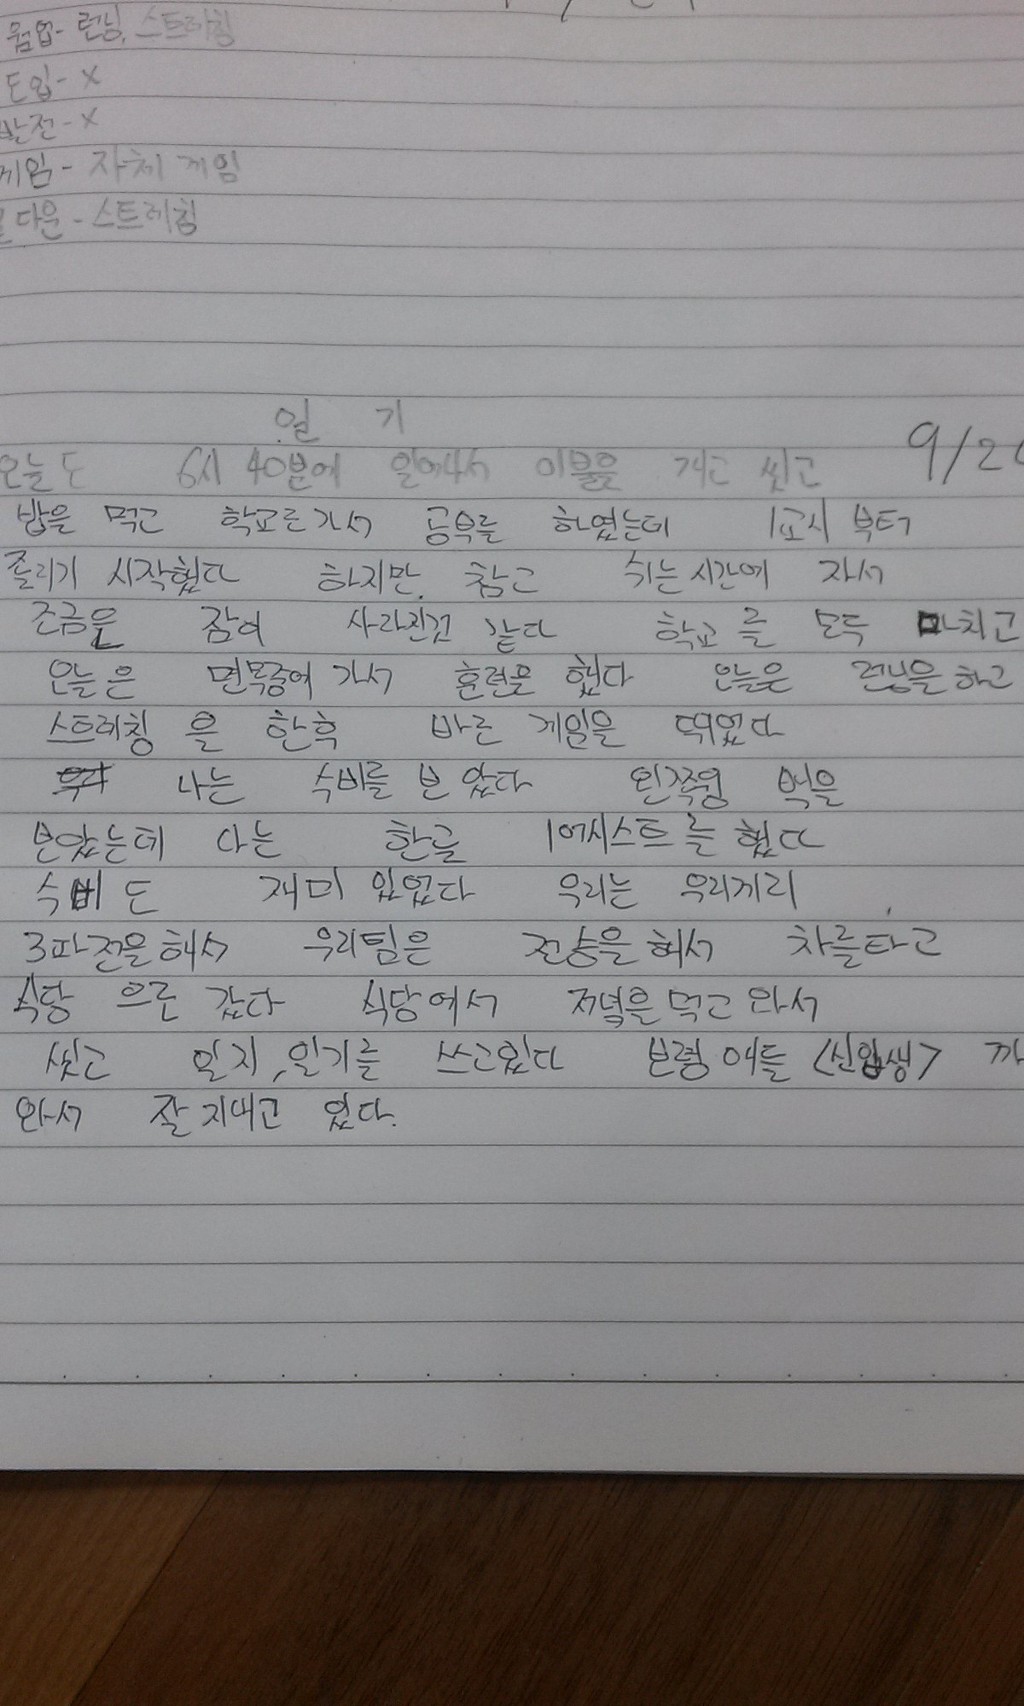 웜업 - 런닝, 스트레칭
도입 - X
발전 - X
게임 - 자체 게임
다운 - 스트레칭
일 기
9/2
오늘도 6시 40분에 일어나서 이불을 개고 씻고
밥을 먹고 학교로가서 공부를 하였는데 1교시 부터
졸리기 시작했다 하지만, 참고 쉬는시간에 자서
조금은 잠이 사라진것 같다 학교를 모두 마치고
오늘은 면목중에 가서 훈련을 했다 오늘은 런닝을하고
스트레칭 을 한후 바로 게임을 뛰었다
나는 수비를 보았다 왼쪽윙 백을
보았는데 나는 한골 1어시스트를 했다
수비도 재미 있었다 우리는 우리끼리
3파전을해서 우리팀은 전승을해서 차를타고
식당 으로 갔다 식당에서 저녁을먹고와서
씻고 일지, 일기를 쓰고있다 보령애들 <신입생> 까
와서 잘지내고 있다.